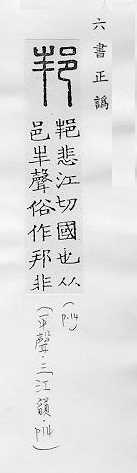 六書正譌
悲江切國也从 (p.14)
邑丰聲俗作邦非 (平聲・三江韻・p14)